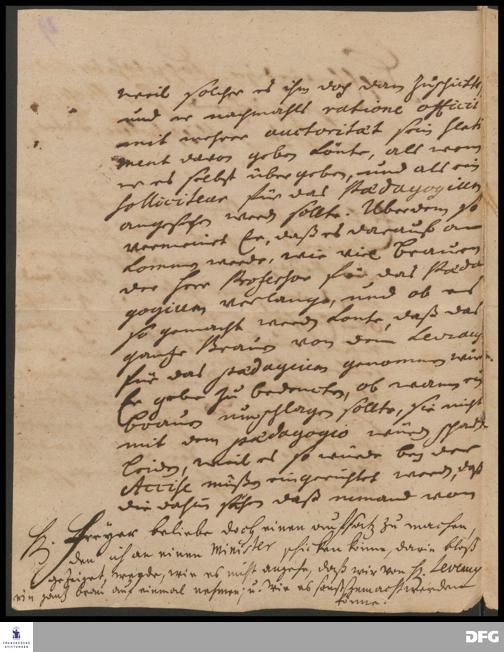 weil solcher es ihm doch dann zuschickte,
und er nachmahls ratione officii
mit mehrer auctorität sein
ment davon geben könte, als wenn
er es selbst übergeben, und als ein
Solliciteur für das Pædagogium
angesehen werden sollte. Überdem so
vermeinet Er, daß es darauf an
kommen werde, wie viel Brauen
der Herr Professor für das Pæda
gogium verlange, und ob es
so gemacht werden könte, daß das
gantze Brauen von dem
für das pædagium genommen würde
Er gebe zu bedencken, ob wann ein
Brauen umschlagen sollte, sie nicht
mit dem pædagogio würden schaden
leiden, weil es so würde bey der
Accise müßen eingerichtet werden, daß
die dahin sehen daß niemand von
H. Freyer beliebe doch einen auffsatz zu machen,
den ich an einen Minister schicken könne, darin bloß
gezeiget werde, wie es nicht angehe, daß wir von H.
ein gantz brau auf einmal nehmen, u. wie es sonst gemacht werden
könne.